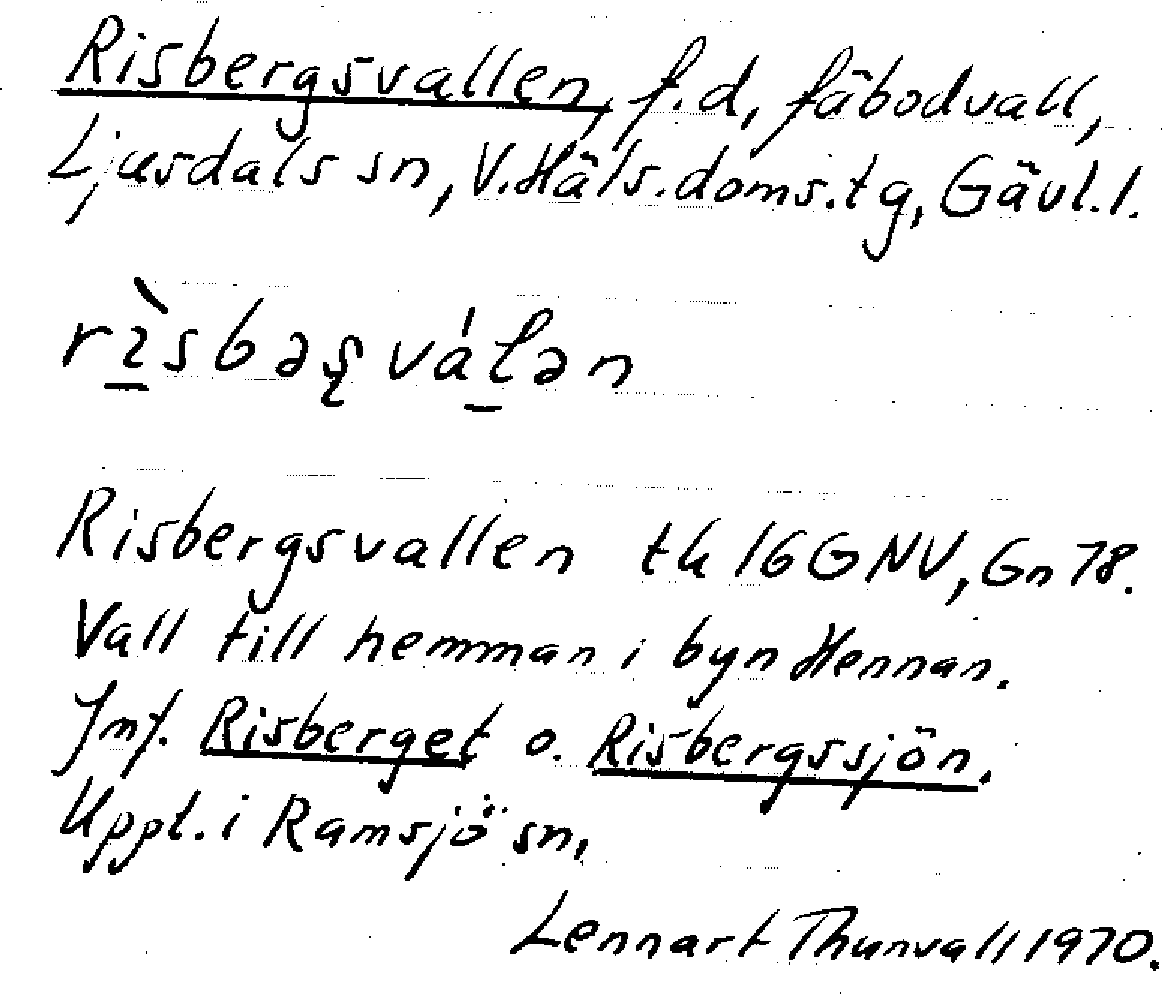 Risbergsvallen, f.d. fäbodvall,
Ljusdals sn, V.Häls.doms.tg, Gävl.l.
rìsbəʂváɫən
Risbergsvallen tk 16GNV, Gn 78.
Vall till hemman i byn Hennan.
Jmf. Risberget o. Risbergssjön.
Uppt. i Ramsjö sn.
Lennart Thunvall 1970.